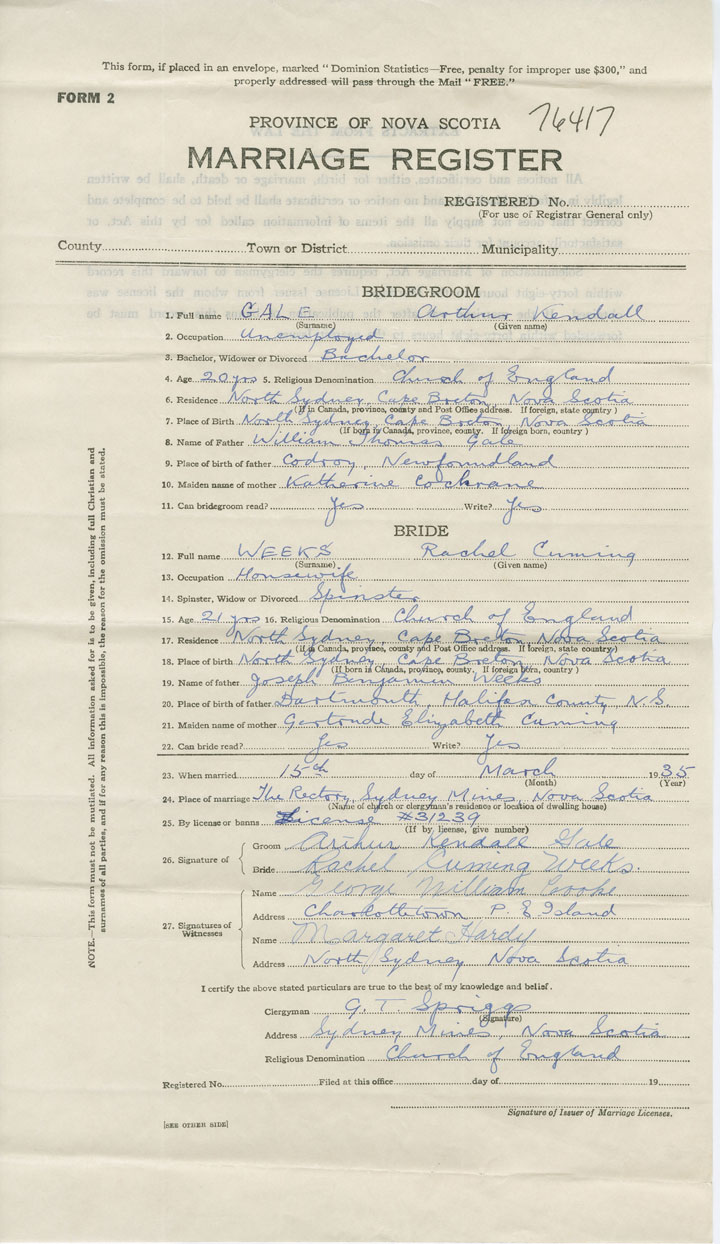 This form, if placed in an envelope, marked "Dominion Statistics—Free, penalty for improper use $300," and
properly addressed will pass through the Mail "FREE."
FORM 2
PROVINCE OF NOVA SCOTIA 76417
MARRIAGE REGISTER
REGISTERED No.
(For use of Registrar General only)
County Town or District Municipality
BRIDEGROOM
1. Full name GALE Arthur Kendall
(Surname) (Given name)
2. Occupation Unemployed
3. Bachelor, Widower or Divorced Bachelor
4. Age 20 yrs 5. Religious Denomination Church of England
6. Residence North Sydney, Cape Breton, Nova Scotia
(If in Canada, province, county and Post Office address. If foreign, state country)
7. Place of Birth North Sydney, Cape Breton, Nova Scotia
(If born in Canada, province, county. If foreign born, country)
8. Name of Father William Thomas Gale
9. Place of birth of father Codroy, Newfoundland
10. Maiden name of mother Katherine Cochrane
11. Can bridegroom read? Yes Write? Yes
BRIDE
12. Full name WEEKS Rachel Cuming
(Surname) (Given name)
13. Occupation Housewife
14. Spinster, Widow or Divorced Spinster
15. Age 21 yrs 16. Religious Denomination Church of England
17. Residence North Sydney, Cape Breton, Nova Scotia
(if in Canada, province, county and Post Office address. If foreign, state country)
18. Place of birth North Sydney, Cape Breton, Nova Scotia
(If born in Canada, province, county. If foreign born, country)
19. Name of father Joseph Benjamin Weeks
20. Place of birth of father Dartmouth Halifax County, N.S.
21. Maiden name of mother Gertrude Elizabeth Cuming
22. Can bride read? Yes Write? Yes
23. When married 15th day of March 1935
(Month) (Year)
24. Place of marriage The Rectory, Sydney Mines, Nova Scotia
(Name of church or clergyman's residence or location of dwelling house)
25. By license or banns License #31239
(If by license, give number)
26. Signature of
Groom Arthur Kendall Gale
Bride Rachel Cuming Weeks.
27. Signatures of Witnesses
Name George William
Address Charlottetown P. E Island
Name Margaret Hardy
Address North Sydney Nova Scotia
I certify the above stated particulars are true to the best of my knowledge and belief.
Clergyman G. T. Spriggs
(Signature)
Address Sydney Mines, Nova Scotia
Religious Denomination Church of England
Registered No. Filed at this office day of 19
Signature of Issuer of Marriage Licenses.
[SEE OTHER SIDE]
NOTE.—This form must not be mutilated. All information asked for is to be given, including full Christian and
surnames of all parties, and if for any reason this is impossible, the reason for the omission must be stated.